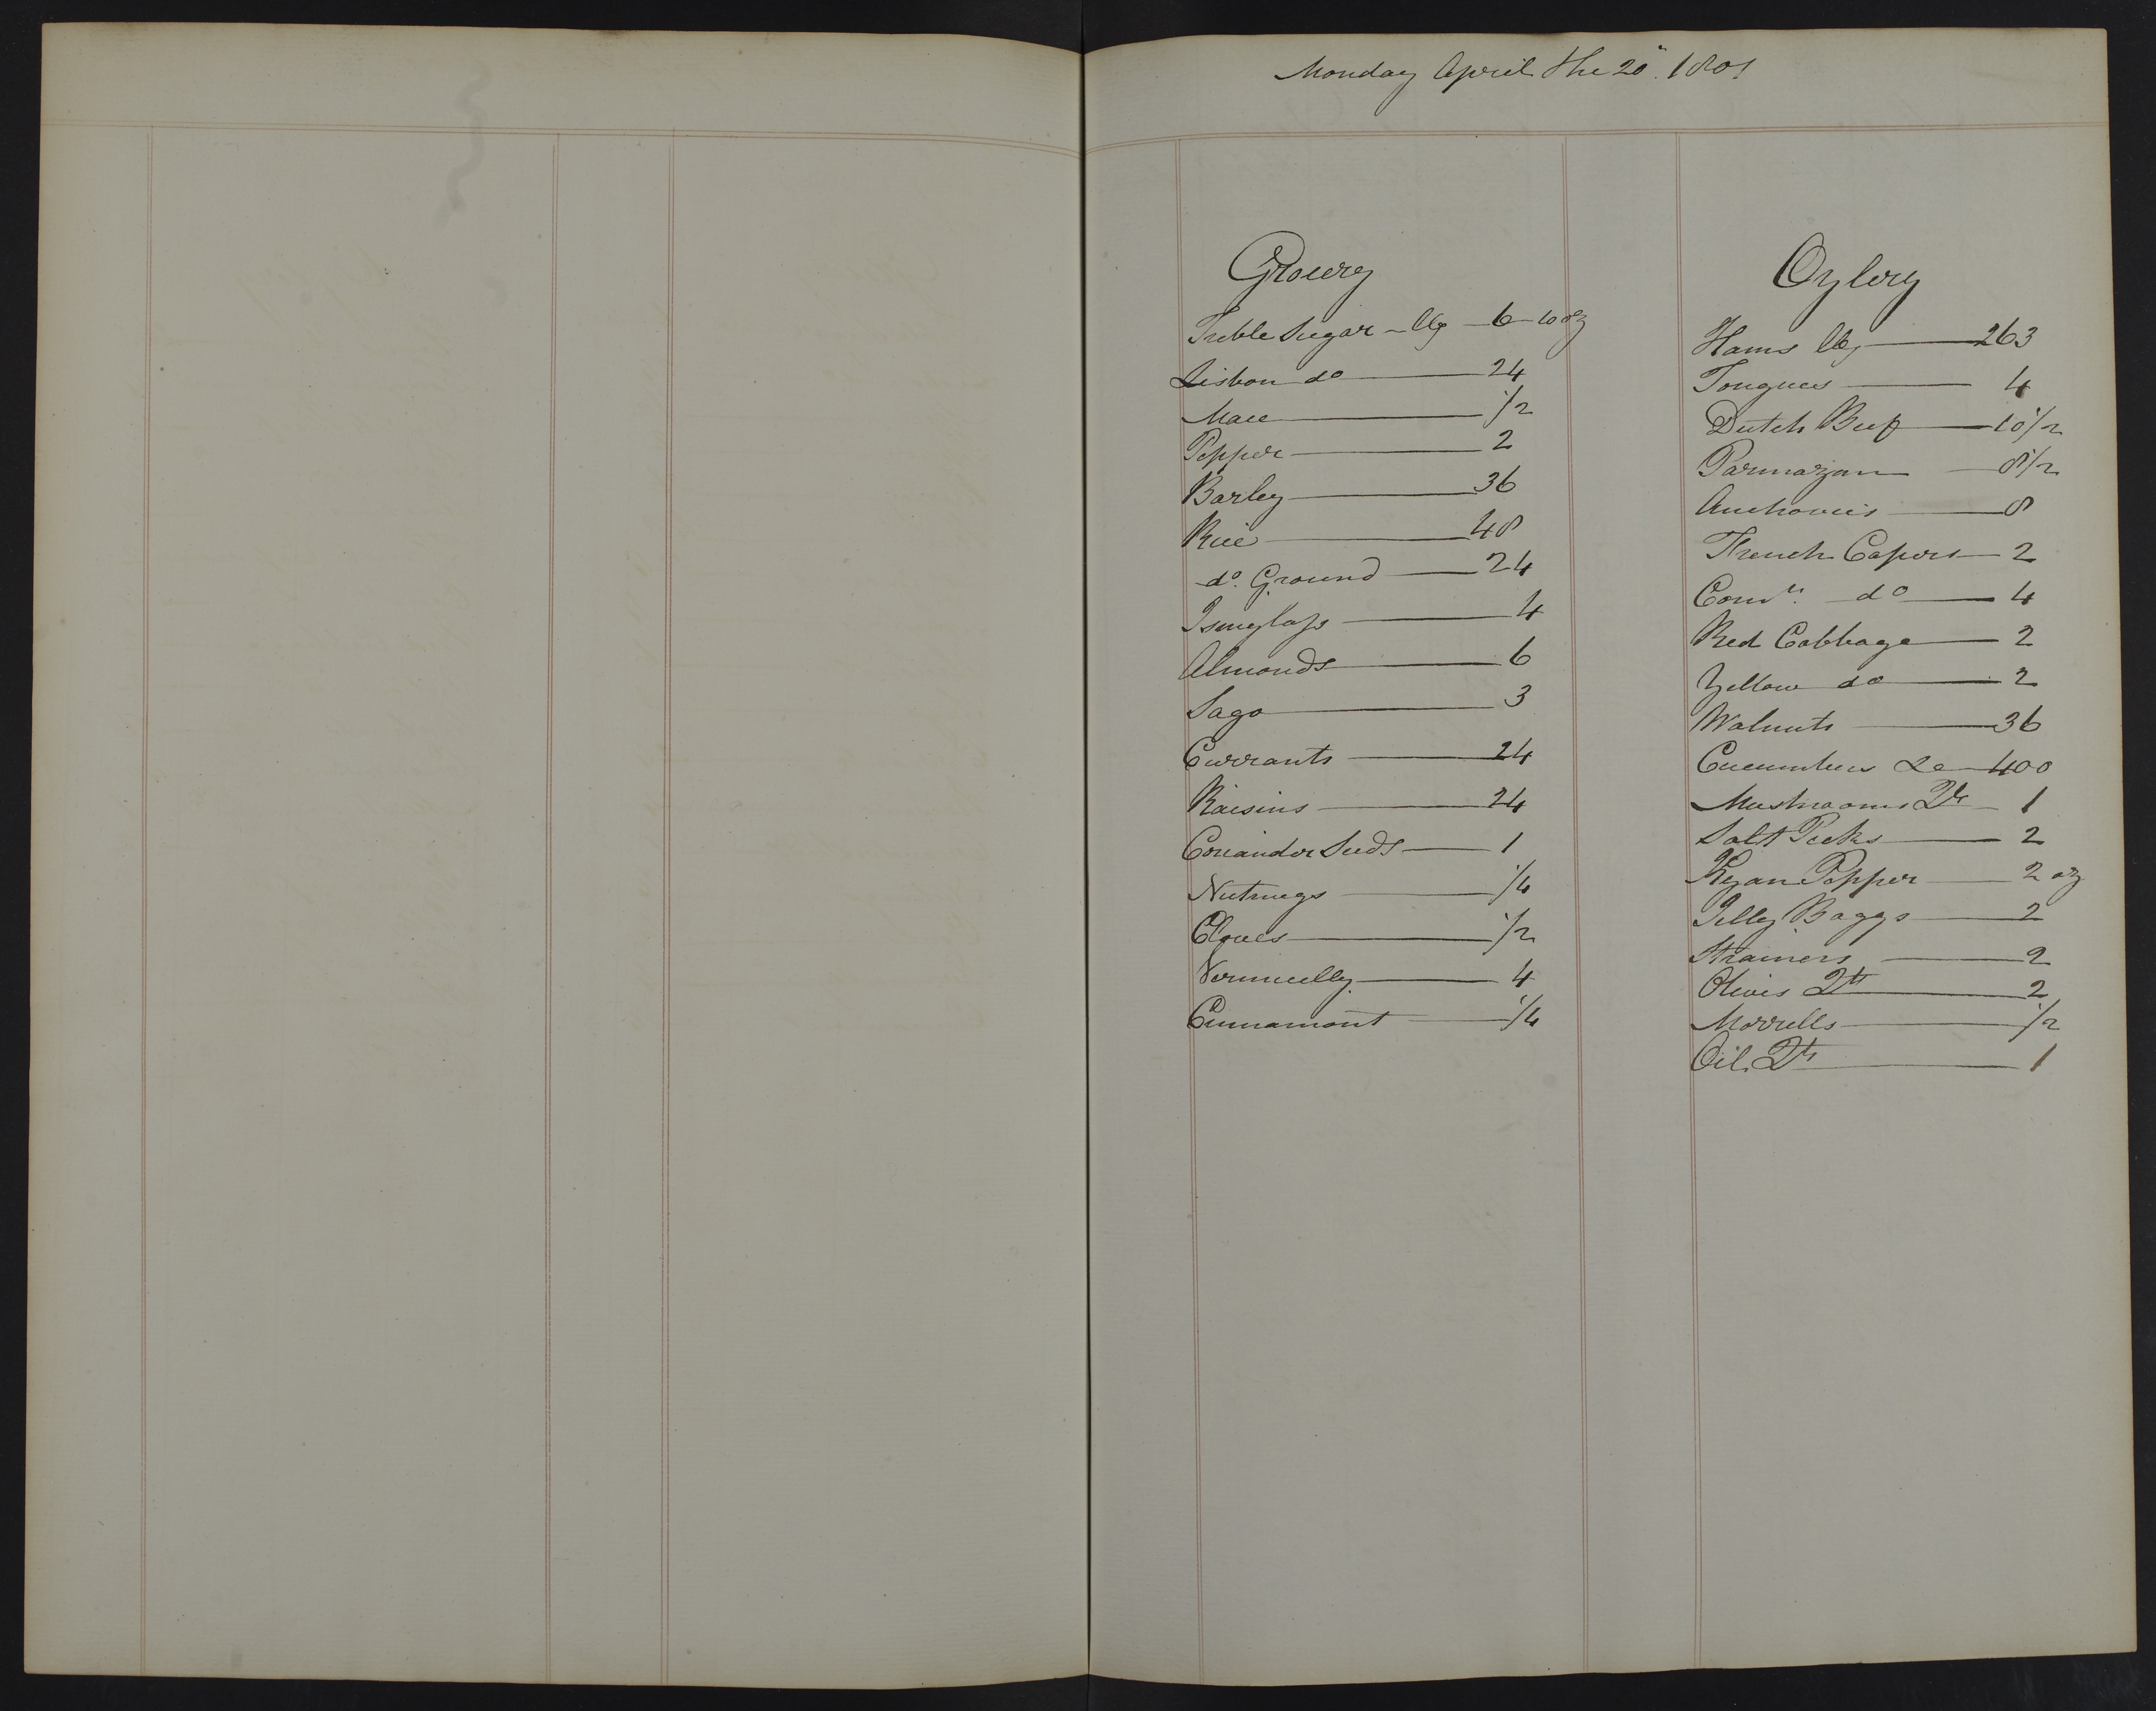 Monday April the 20th. 1801
Grocery
Treble Sugar - lbs - 6 - 10 oz
Lisbon do - 24
Mace - 1/2
Pepper - 2
Barley - 36
Rice - 48
do. Ground - 24
Isinglass - 4
Almonds - 6
Sago - 3
Currants - 24
Raisins - 24
Coriander Seeds - 1
Nutmegs - 1/4
Cloves - 1/2
Vermicelly - 4
Cinnamont - 1/4
Oylery
Hams lbs - 263
Tongues - 4
Dutch Beef - 10 1/2
Parmazan - 8 1/2
Anchovies - 8
French Capers - 2
Comn. do - 4
Red Cabbage - 2
Yellow do - 2
Walnuts - 36
Cucumbers &c - 400
Mushrooms Qts - 1
Salt Pecks - 2
Kyan Pepper - 2 oz
Jelly Baggs - 2
Strainers - 2
Olives Qts - 2
Morrells - 1/2
Oil. Qts - 1